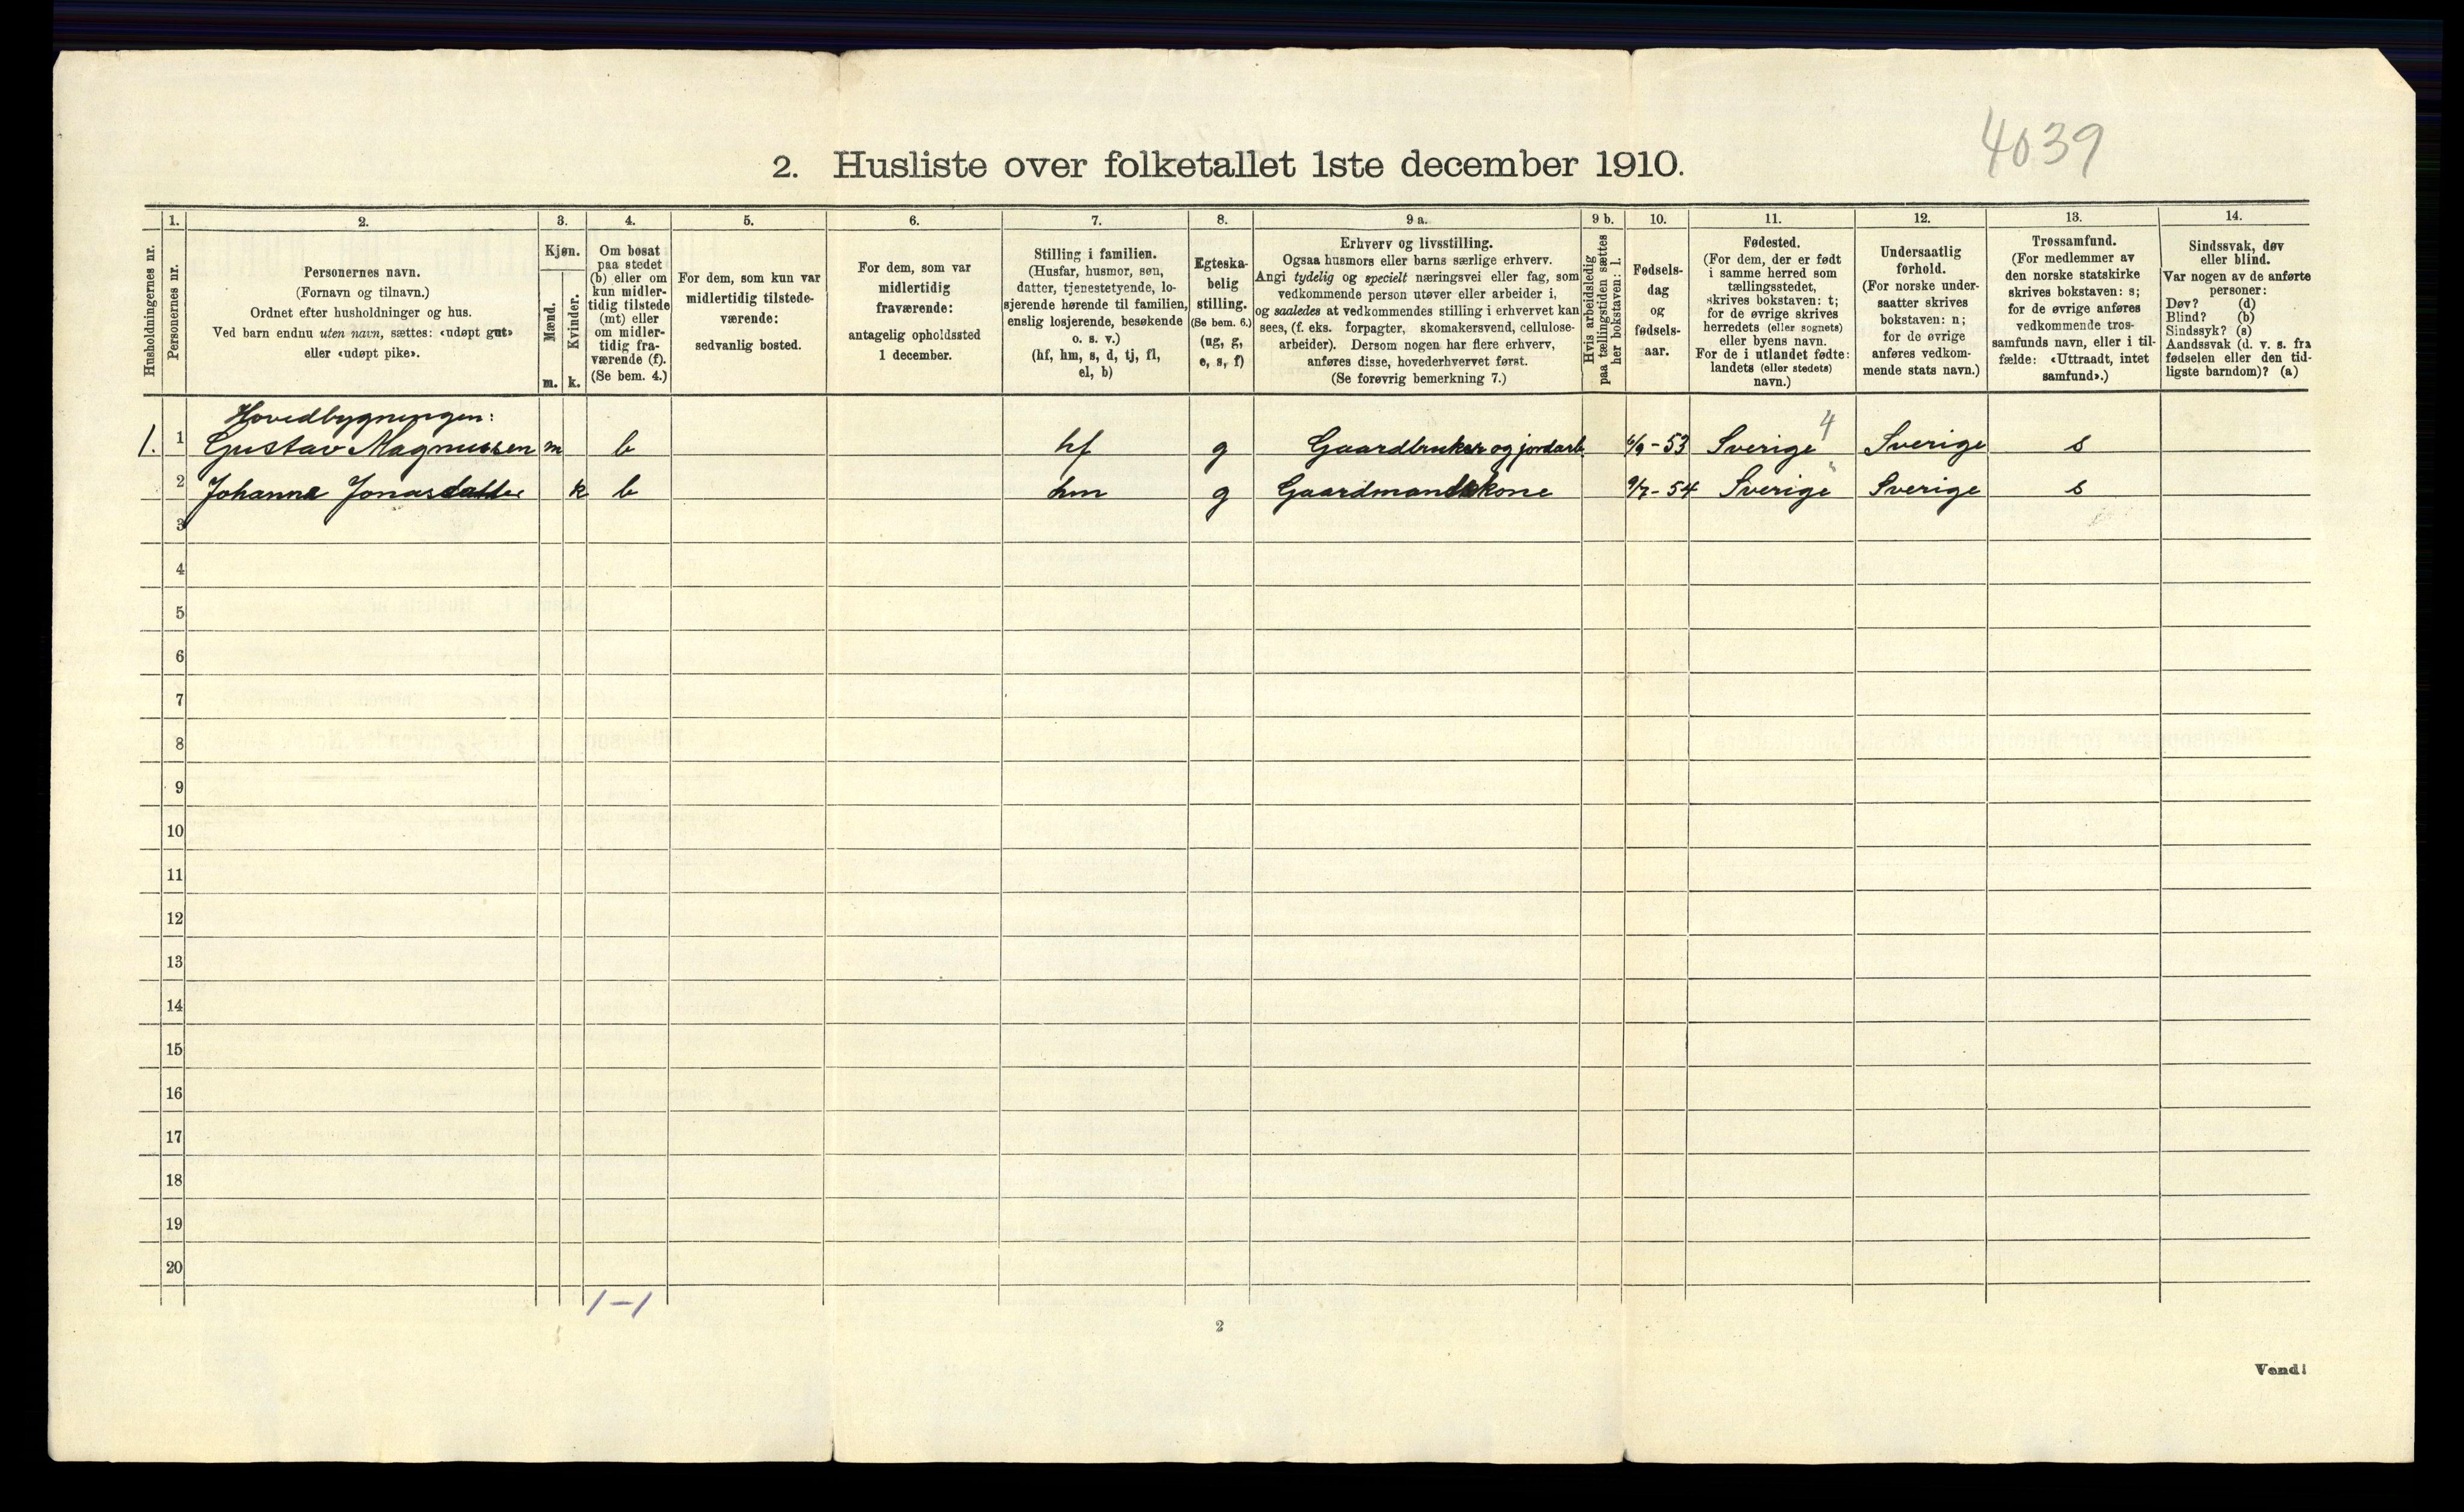 4039
2. Husliste over folketallet 1ste december 1910.
Husholdningernes nr.
1.
Personernes nr.
2.
Personernes navn.
(Fornavn og tilnavn.)
Ordnet efter husholdninger og hus.
Ved barn endnu uten navn, sættes: «udøpt gut»
eller «udøpt pike».
3.
Kjøn.
Mænd.
m.
Kvinder.
k.
4.
Om bosat
paa stedet
(b) eller om
kun midler-
tidig tilstede
(mt) eller
om midler-
tidig fra-
værende (f).
(Se bem. 4.)
5.
For dem, som kun var
midlertidig tilstede-
værende:
sedvanlig bosted.
6.
For dem, som var
midlertidig
fraværende:
antagelig opholdssted
1 december.
7.
Stilling i familien.
(Husfar, husmor, søn,
datter, tjenestetyende, lo-
sjerende hørende til familien,
enslig losjerende, besøkende
o. s. v.)
(hf, hm, s, d, tj, fl,
el, b)
8.
Egteska-
belig
stilling.
(Se bem. 6.)
(ug, g,
e, s, f)
9 a.
Erhverv og livsstilling.
Ogsaa husmors eller barns særlige erhverv.
Angi tydelig og specielt næringsvei eller fag, som
vedkommende person utøver eller arbeider i,
og saaledes at vedkommendes stilling i erhvervet kan
sees, (f. eks. forpagter, skomakersvend, cellulose-
arbeider). Dersom nogen har flere erhverv,
anføres disse, hovederhvervet først.
(Se forøvrig bemerkning 7.)
9 b.
Hvis arbeidsledig
paa tællingstiden sættes
her bokstaven: l.
10.
Fødsels-
dag
og
fødsels-
aar.
11.
Fødested.
(For dem, der er født
i samme herred som
tællingsstedet,
skrives bokstaven: t;
for de øvrige skrives
herredets (eller sognets)
eller byens navn.
For de i utlandet fødte:
landets (eller stedets)
navn.)
12.
Undersaatlig
forhold.
(For norske under-
saatter skrives
bokstaven: n;
for de øvrige
anføres vedkom-
mende stats navn.)
13.
Trossamfund.
(For medlemmer av
den norske statskirke
skrives bokstaven: s;
for de øvrige anføres
vedkommende tros-
samfunds navn, eller i til-
fælde: «Uttraadt, intet
samfund».)
14.
Sindssvak, døv
eller blind.
Var nogen av de anførte
personer:
Døv? (d)
Blind? (b)
Sindssyk? (s)
Aandssvak (d. v. s. fra
fødselen eller den tid-
ligste barndom)? (a)
Hovedbygningen:
1. 1 Gustav Magnussen m b hf g Gaardbruker og jordarb. 6/9-53 Sverige 4 Sverige s
2 Johanna Jonasdatter k b hm g Gaardmandskone 9/7-54 Sverige " Sverige s
3
4
5
6
7
8
9
10
11
12
13
14
15
16
17
18
19
20
1-1
2
Vend!